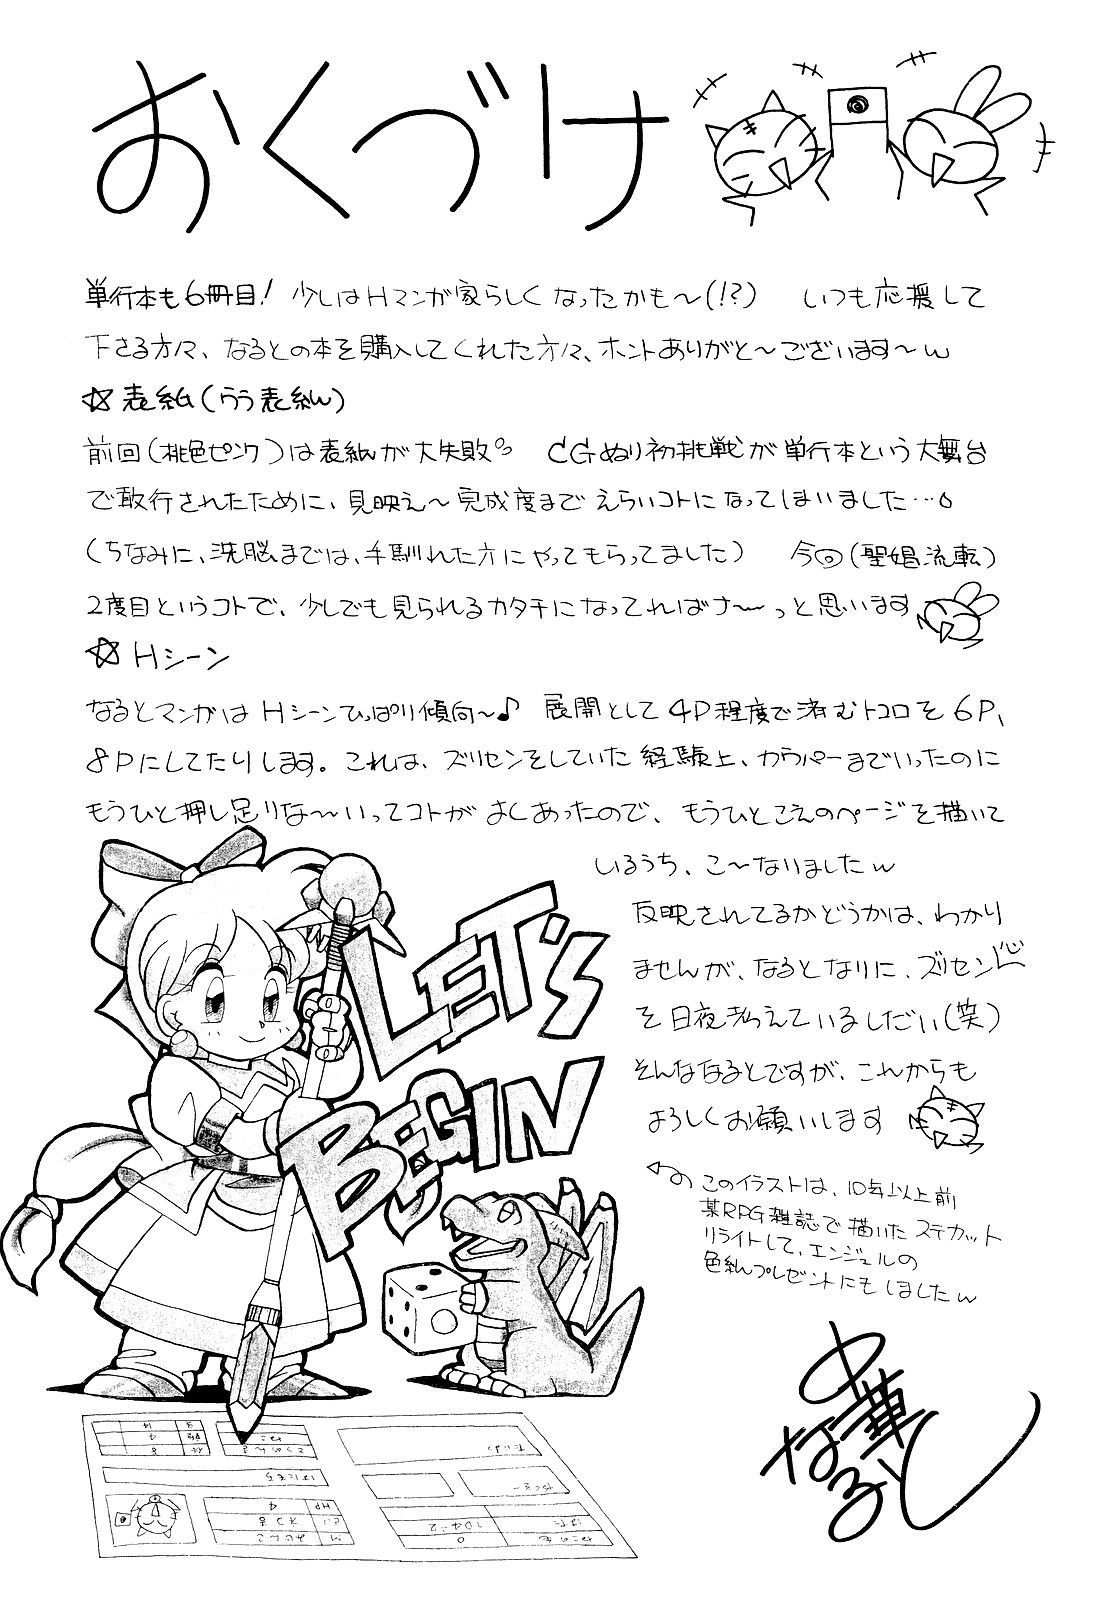 おくづけ
単行本も6冊目! 少しはHマンガ家らしくなったかも〜(!?) いつも応援して
下さる方々、なるとの本を購入してくれた方々、ホントありがと〜ございます〜w
☆表紙(うう表紙)
前回(桃色ピンク)は表紙が大失敗。 CGぬり初挑戦が単行本という大舞台
で敢行されたために、見映え〜完成度まで えらいコトになってしまいました…。
(ちなみに、洗脳までは、手馴れた方にやってもらってました) 今回(聖娼流転)
2度目というコトで、少しでも見られるカタチになってればナ〜っと思います
☆Hシーン
なるとマンガは Hシーンひっぱり傾向〜♪ 展開として4P程度で済むトコロを6P、
8Pにしてたりします。これは、ズリセンをしていた経験上、カウパーまでいったのに
もうひと押し足りな〜いってコトがよくあったので、もうひとこえのページを描いて
いるうち、こ〜なりましたw
反映されてるかどうかは、わかり
ませんが、なるとなりに、ズリセン
を日夜考えているしだい(笑)
そんななるとですが、これからも
よろしくお願いします
このイラストは、10年以上前
某RPG雑誌で描いた ステカット
リライトして、エンジェルの
色紙プレゼントにもしましたw
LET'S
BEGIN
中華
なると